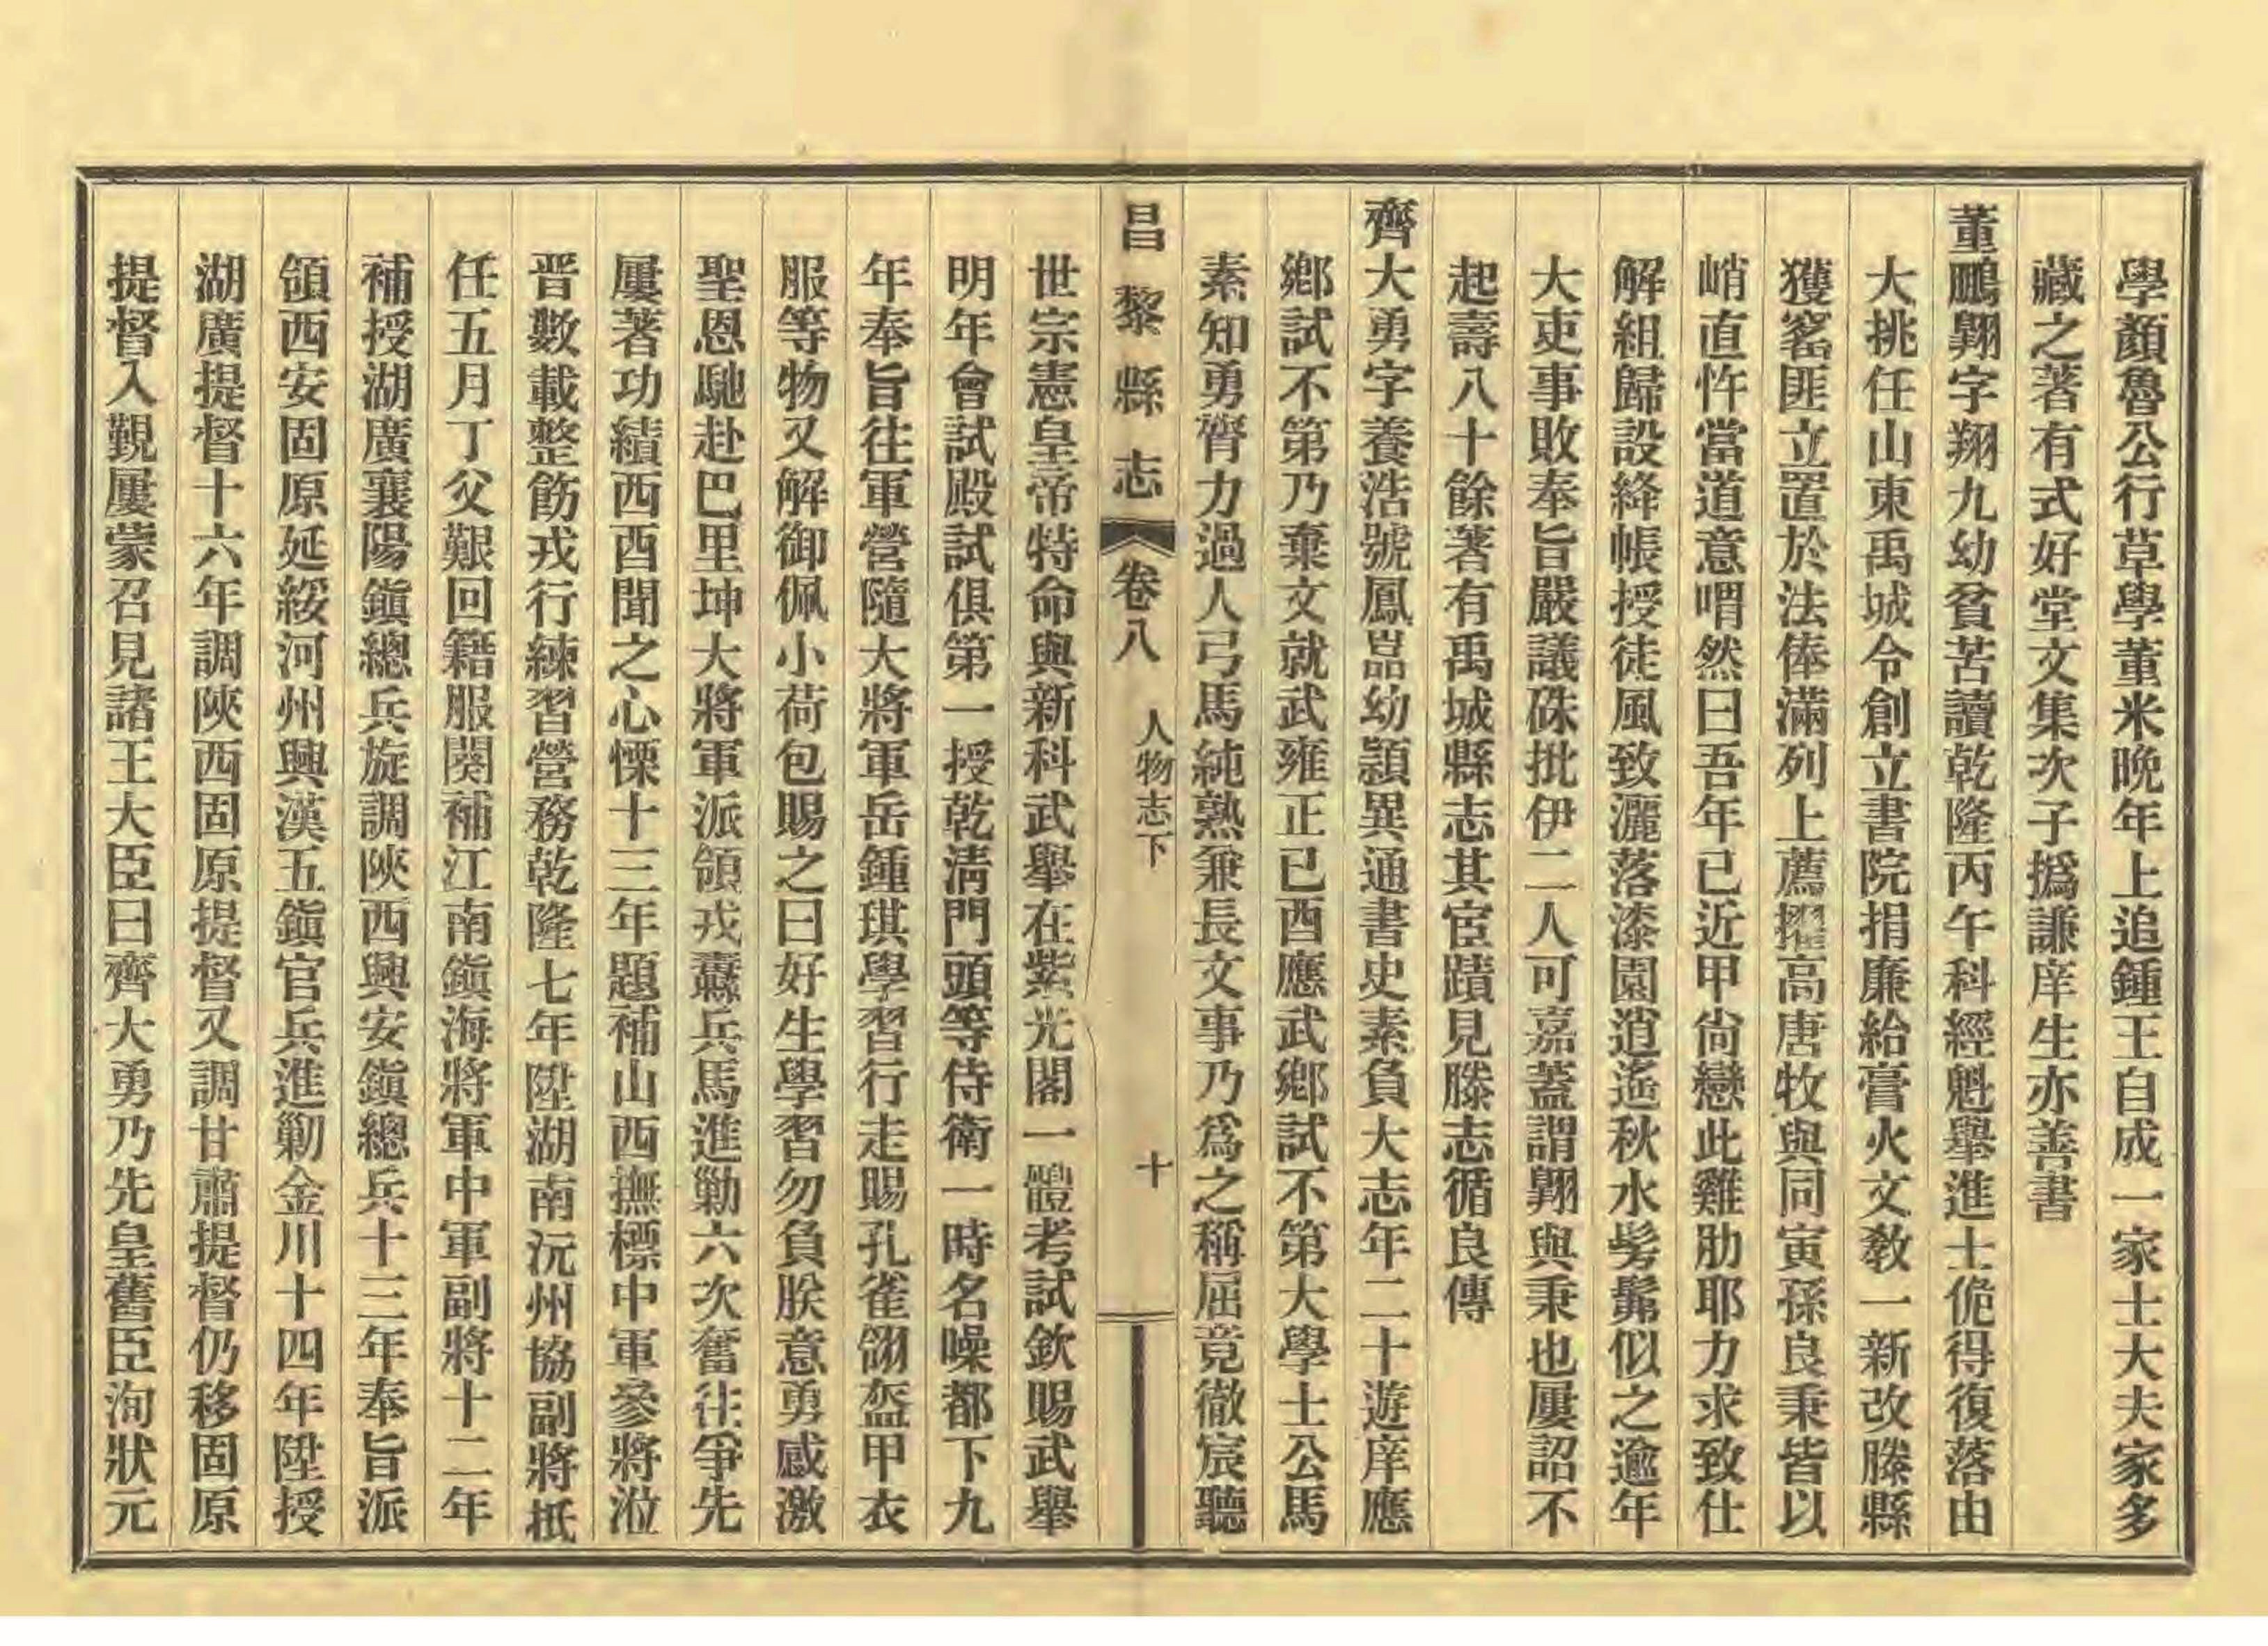 學顏魯公行草學董米晚年上追鍾王自成一家士大夫家多
藏之著有式好堂文集次子撝謙庠生亦善書
董鵬翺字翔九幼貧苦讀乾隆丙午科經魁舉進士佹得復落由
大挑任山東禹城令創立書院捐廉給膏火文教一新改滕縣
獲窰匪立置於法俸滿列上薦擢高唐牧與同寅孫良秉皆以
峭直忤當道意喟然曰吾年已近甲尙戀此雞肋耶力求致仕
解組歸設絳帳授徒風致灑落漆園逍遙秋水髣髴似之逾年
大吏事敗奉旨嚴議硃批伊二人可嘉蓋謂翺與秉也屢詔不
起壽八十餘著有禹城縣志其宦蹟見滕志循良傳
齊大勇字養浩號鳳嵓幼穎異通書史素負大志年二十遊庠應
鄉試不第乃棄文就武雍正已酉應武鄉試不第大學士公馬
素知勇膂力過人弓馬純熟兼長文事乃爲之稱屈竟徹宸聽
昌黎縣志 卷八 人物志下 十
世宗憲皇帝特命與新科武舉在紫光閣一體考試欽賜武舉
明年會試殿試俱第一授乾淸門頭等侍衛一時名噪都下九
年奉旨往軍營隨大將軍岳鍾琪學習行走賜孔雀翎盔甲衣
服等物又解御佩小荷包賜之曰好生學習勿負朕意勇感激
聖恩馳赴巴里坤大將軍派領戎纛兵馬進勦六次奮往爭先
屢著功績西酉聞之心慄十三年題補山西撫標中軍參將涖
晋數載整飭戎行練習營務乾隆七年陞湖南沅州協副將抵
任五月丁父艱回籍服闋補江南鎭海將軍中軍副將十二年
補授湖廣襄陽鎭總兵旋調陝西興安鎭總兵十三年奉旨派
領西安固原延綏河州興漢五鎭官兵進勦金川十四年陞授
湖廣提督十六年調陝西固原提督又調甘肅提督仍移固原
提督入覲屢蒙召見諸王大臣曰齊大勇乃先皇舊臣洵狀元